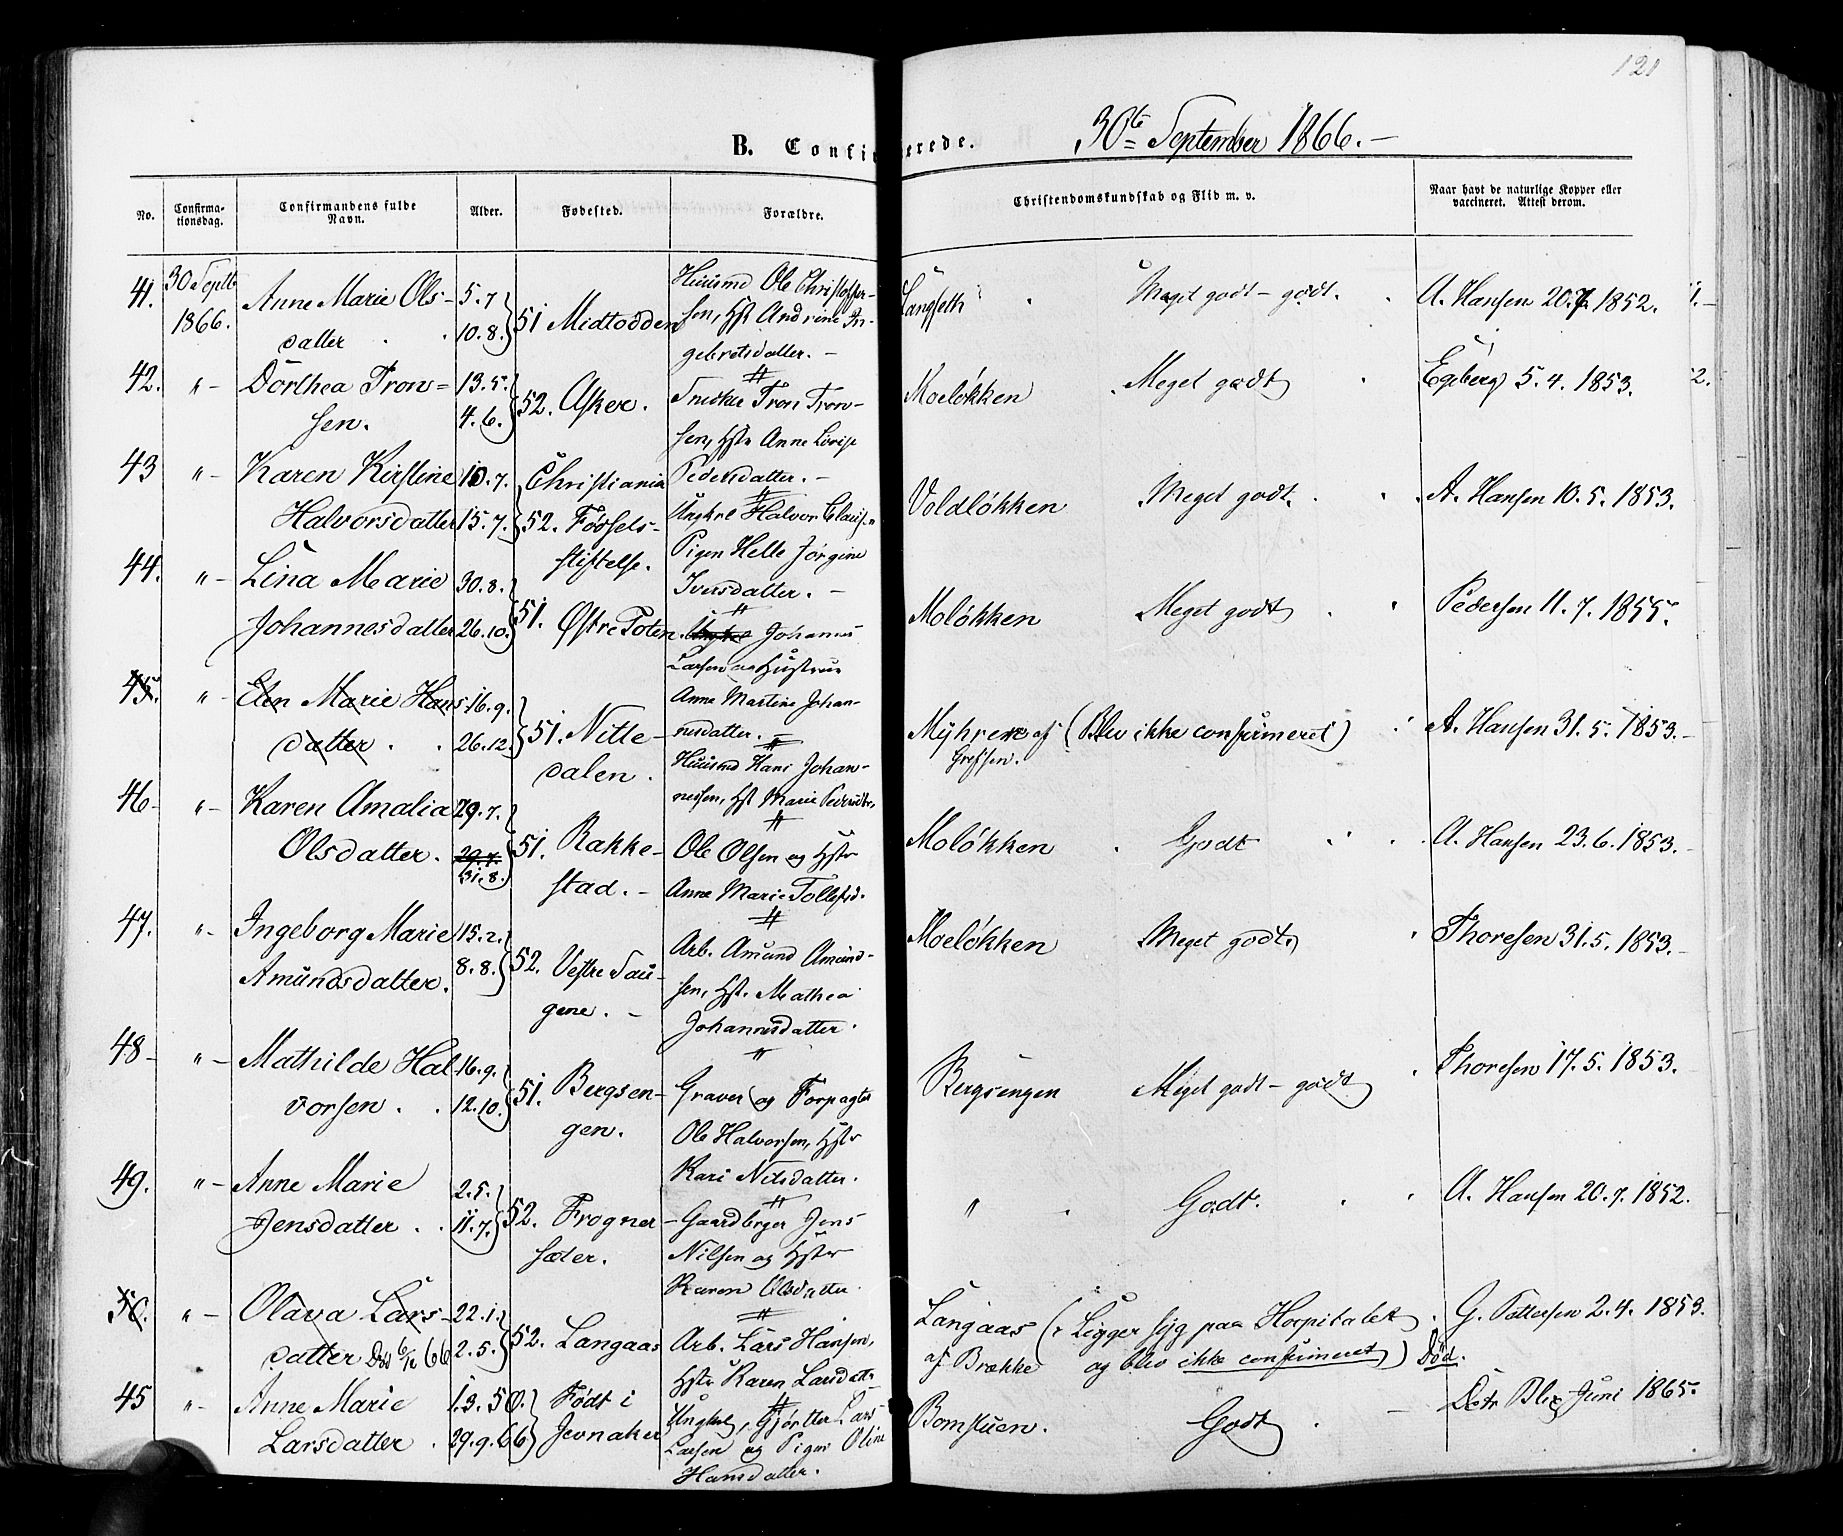 121
B. Confirmerede. 30te September 1866.-
No. Confirma-tionsdag. Confirmandens fulde Navn. Alder. Fødested. Forældre. Christendomskundskab og Flid m. v. Naar havt de naturlige Kopper eller vaccineret. Attest derom.
41. 30 Septb 1866. Anne Marie Ols-
datter 5.7 10.8. 51 Midtodden
Huusmd Ole Christoffer-
sen, Hst Andrine In-
gebretsdatter. -
Langseth Meget godt - godt. A. Hansen 20.7. 1852.
42. "- Dorthea Tron=
sen. 13.5. 4.6. 52. Asker.
Snedker Tron Tron-
sen, Hstr Anne Lovise
Pedersdatter. -
Moeløkken Meget godt Egeberg 5.4. 1853.
43 "- Karen Kirstine
Halvorsdatter 10.7. 15.7. 52. Christiania
Fødsels-
stiftelse.
Ungkrl Halvor Clausen
Pigen Helle Jørgine
Iversdatter. -
Voldløkken Meget godt. A. Hansen 10.5. 1853.
44. "- Lina Marie
Johannesdatter 30.8. 26.10. 51. Østre Toten.
Ungkrl Johannes
Larsen og Hustrue
Anne Martine Johan-
nesdatter. -
Moløkken Meget godt Pedersen 11.7. 1855.
45. "- Elen Marie Hans
datter 16.9. 26.12. 51. Nitte-
dalen.
Huusmd Hans Johan-
nessen, Hst Marie Pedersdtr.
Myhren af Grefsen. (Blev ikke confirmeret) A. Hansen 31.5. 1853.-
46- "- Karen Amalia
Olsdatter. 29.7. 29.7. 31.8. 51. Rakke-
stad. -
Ole Olsen og Hstr
Anne Marie Tollefsd.
Moløkken Godt A. Hansen 23.6. 1853.-
47. "- Ingeborg Marie
Amundsdatter. 15.2. 8.8. 52. Vestre Sau-
gene. -
Arb. Amund Amund-
sen, Hst. Mathea
Johannesdatter.
Moeløkken Meget godt Thoresen 31.5. 1853.-
48- "- Mathilde Hal
vorsen. 16.9. 12.10. 51. Bergsen-
gen.
Graver og Forpagter
Ole Halvorsen, Hstr
Kari Nilsdatter.
Bergsengen Meget godt - godt Thoresen 17.5. 1853.
49. "- Anne Marie
Jensdatter 2.5. 11.7. 52. Frogner-
sæter.
Gaardberger Jens
Nilsen og Hstr
Karen Olsdatter
" Godt. A. Hansen 20.7. 1852.
50. "- Olava Lars-
datter Død 6/12 66 22.1. 2.5. 52. Langaas
Arb. Lars Hansen,
Hstr Karen Larsdatter
Langaas af Brække (Ligger syg paa Hospitalet
og blev ikke confirmeret) Død. G. Pettersen 2.4. 1853.
45 "- Anne Marie
Larsdatter 1.3.50. 29.9.66 Født i
Jevnaker
Ungkrl, Gjørtler Lars
Larsen og Pigen Oline
Hansdatter.
Bomstuen. Godt - Dstr Blix Juni 1865.